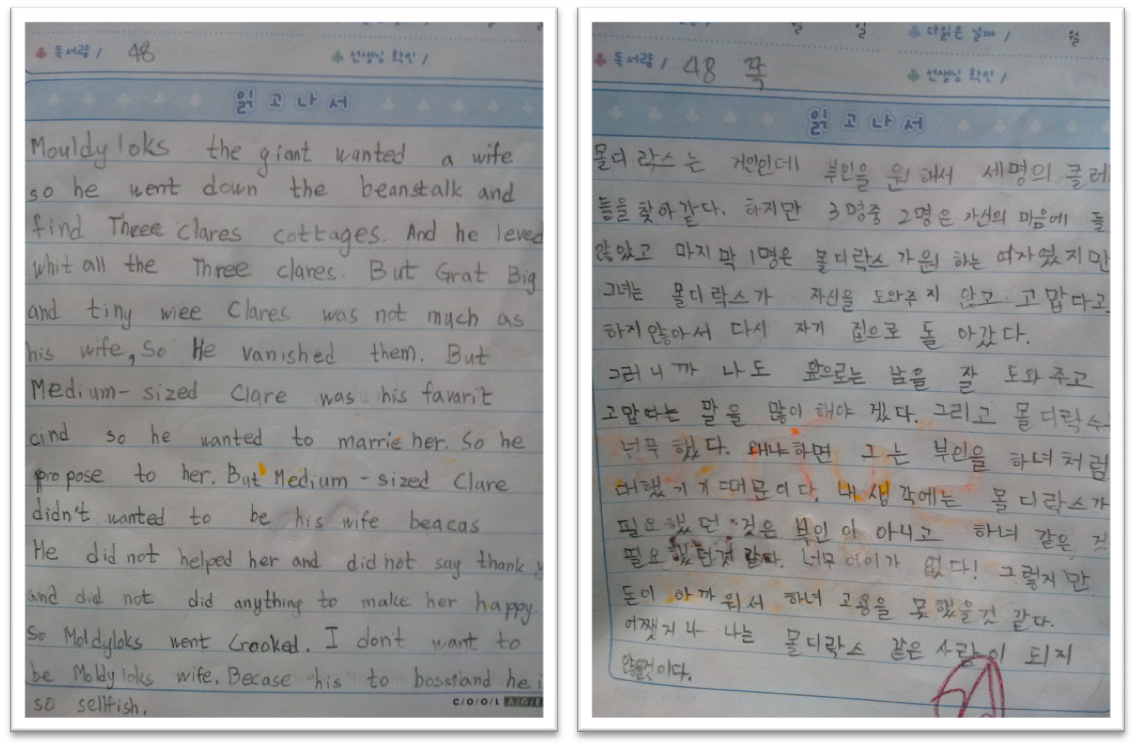 독서량 / 48
선생님 확인 /
읽고나서
Mouldy loks the giant wanted a wife
so he went down the beanstalk and
find Three clares cottages. And he leved
whit all the Three clares. But Grat Big
and tiny wiee Clares was not much as
his wife, So He vanished them. But
Medium-sized Clare was his favarit
and so he wanted to marrie her. So he
propose to her. But Medium-sized Clare
didn't wanted to be his wife beacas
He did not helped her and did not say thank y
and did not did anything to make her happy.
So Moldyloks went Crooked. I don't want to
be Moldy loks wife. Becase his to bossy and he i
so sellfish.
C/O/O/L
월 일
다읽은 날짜 / 월
독서량 / 48 쪽
선생님 확인 /
읽고나서
몰디 락스는 거인인데 부인을 원 해서 세명의 클레
들을 찾아갔다. 하지만 3명중 2명은 자신의 마음에 들
않았고 마지막 1명은 몰디락스가 원 하는 여자였지만
그녀는 몰디락스가 자신을 도와주지 않고 고맙다고
하지않아서 다시 자기 집으로 돌아갔다.
그러니까 나도 앞으로는 남을 잘 도와주고
고맙다는 말을 많이 해야 겠다. 그리고 몰디락스
너무 했다. 왜냐하면 그는 부인을 하녀처럼
대했기기 때문이다. 내 생각에는 몰디락스가
필요했던 것은 부인이 아니고 하녀 같은 것
필요했던것 같다. 너무 어이가 없다! 그렇지만
돈이 아까워서 하녀 고용을 못했을것 같다.
어쨌거나 나는 몰디락스 같은 사람이 되지
않을것이다.